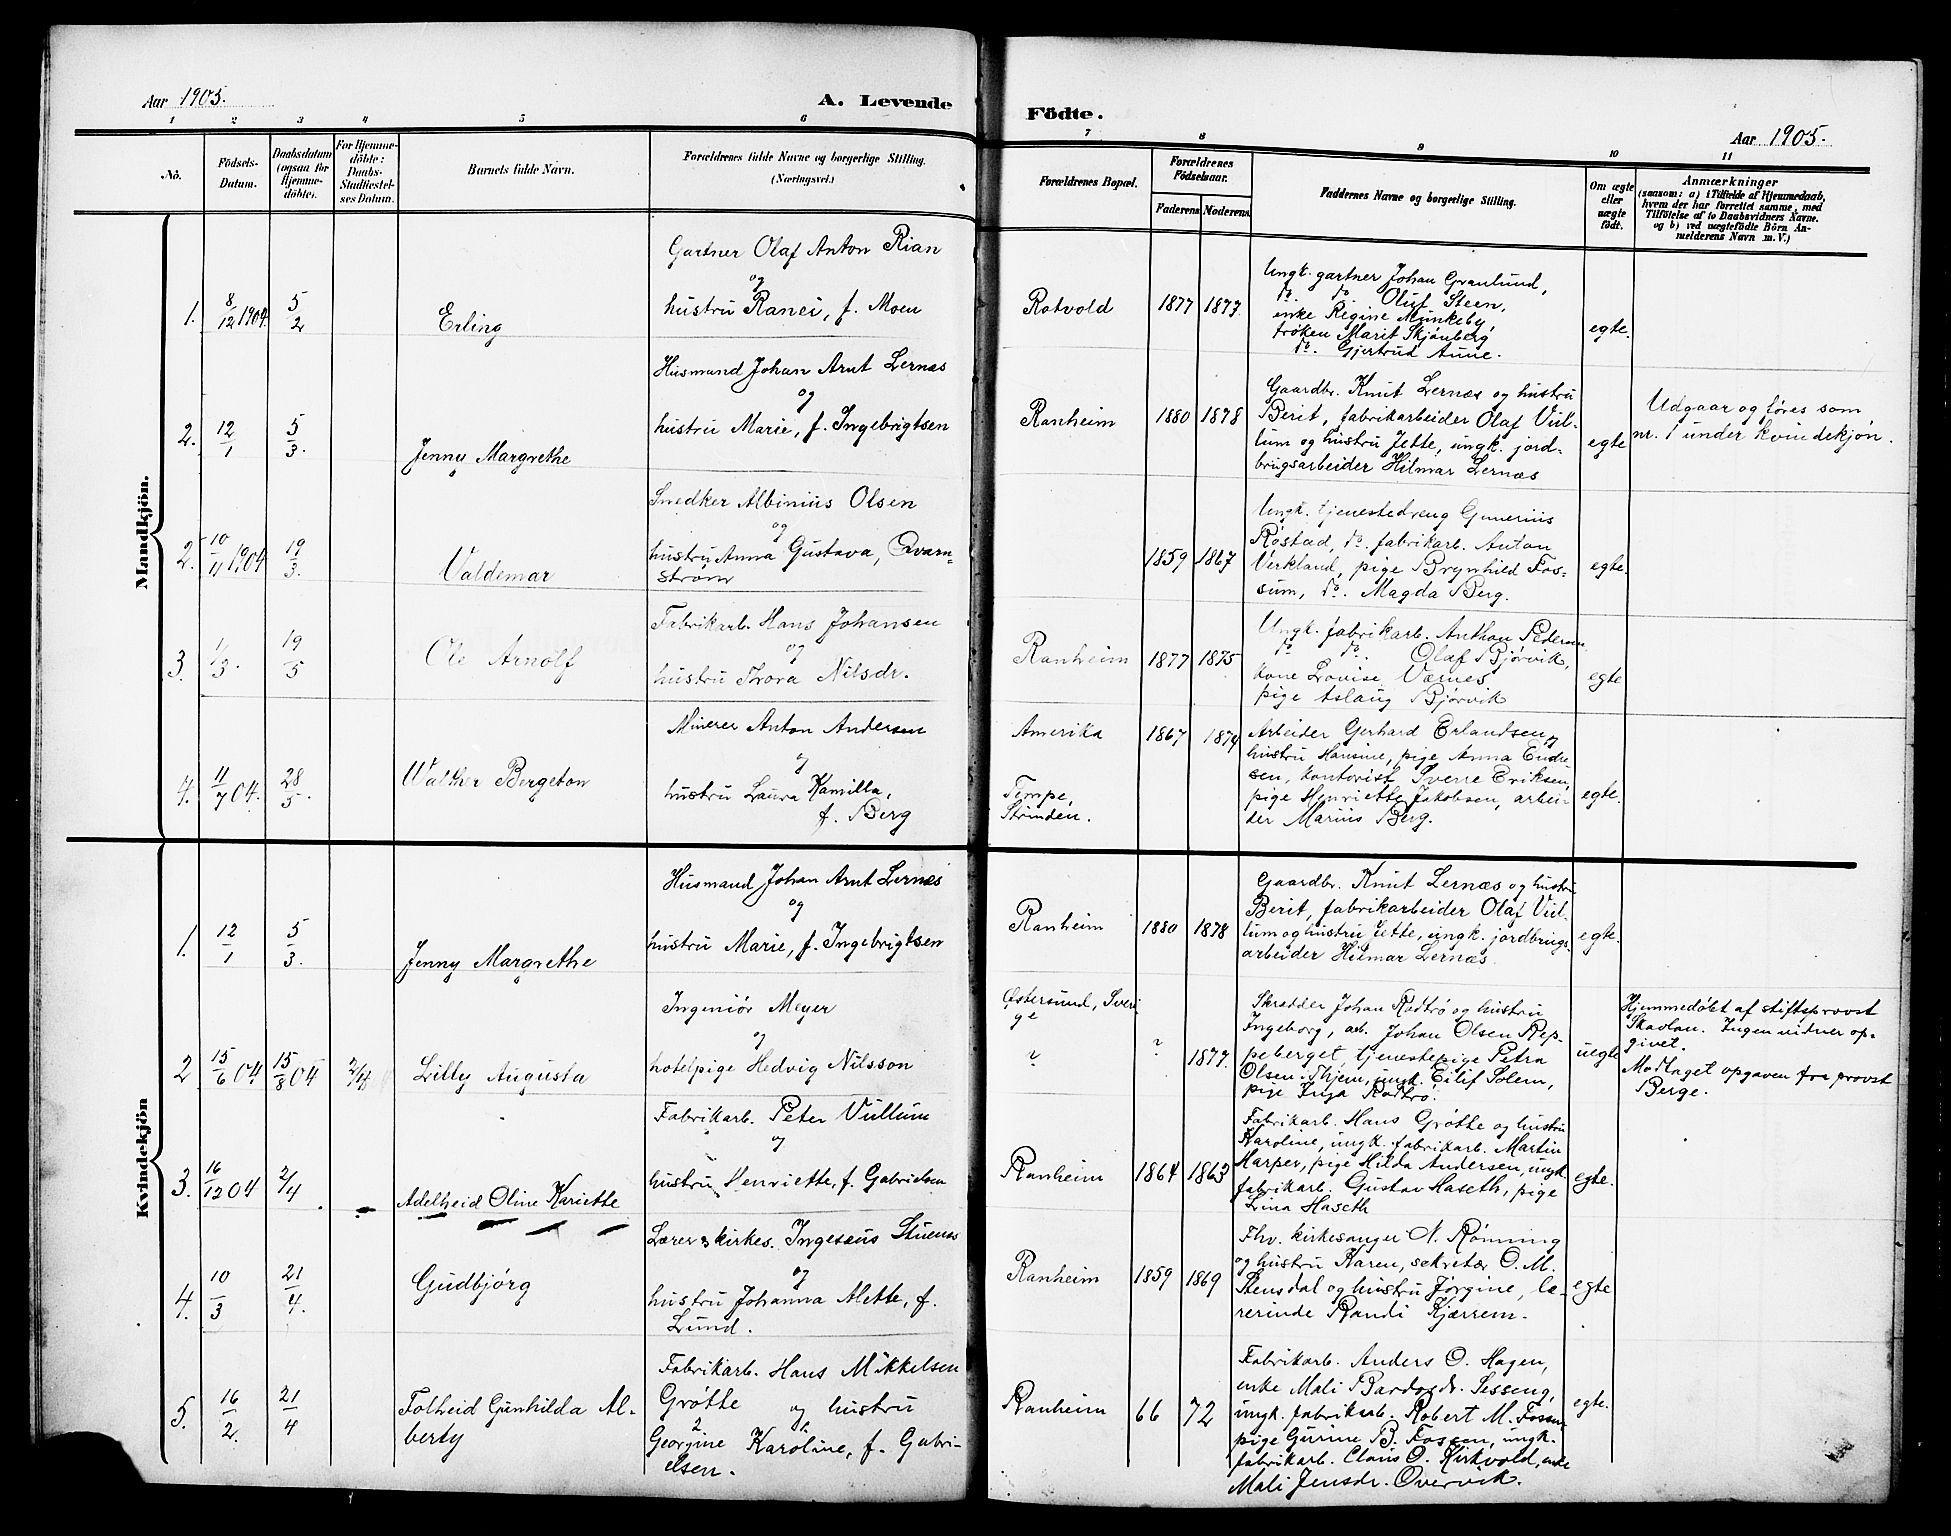 Aar 1905.
A. Levende
Födte.
Aar 1905.
1
2
3
4
5
6
7
8
9
10
11
No.
Födsels-
Datum.
Daabsdatum
(ogsaa for
Hjemme-
döbte).
For Hjemme-
döbte:
Daabs-
Stadfæstel-
ses Datum.
Barnets fulde Navn.
Forældrenes fulde Navne og borgerlige Stilling.
(Næringsvei.)
Forældrenes Bopæl.
Forældrenes
Födselsaar.
Faderens
Moderens.
Faddernes Navne og borgerlige Stilling.
Om ægte
eller
uægte
födt.
Anmærkninger
(saasom: a) i Tilfælde af Hjemmedaab,
hvem der har forrettet samme, med
Tilföielse af to Daabsvidners Navne.
og b) ved uægtefödte Börn An-
melderens Navn m. V.)
Mandkjön.
1. 8/12 1904. 5/2
Erling
Gartner Olaf Anton Rian
og
hustru Ranei, f. Moen
Rotvold
1877 1877.
Ungk. gartner Johan Granlund,
do. do. Oluf Steen,
enke Regine Munkeby,
frøken Marit Skjønberg
do. Gjertrud Aune.
egte.
2. 12/1 5/3.
Jenny Margrethe
Husmand Johan Arnt Lernæs
og
hustru Marie, f. Ingebrigtsen
Ranheim
1880 1878
Gaardbr. Knut Lernæs og hustru
Berit, fabrikarbeider Olaf Vul-
lum og hustru Jette, ungk. jord-
brugsarbeider Hilmar Lernæs
egte
Udgaar og føres som
nr. 1 under kvindekjøn.
2. 10/11 1904 19/3.
Valdemar
Snedker Albinius Olsen
og
hustru Anna Gustava, Qvarn-
strøm
1859 1867
Ungk. tjenestedreng Gunerius
Røstad, do. fabrikarb. Anton
Virkland, pige Brynhild Fos-
sum, do. Magda Berg.
egte.
3. 1/3. 19/5
Ole Arnolf
Fabrikarb. Hans Johansen
og
hustru Thora Nilsdr.
Ranheim
1877 1875
Ungk. fabrikarb. Anthon Pedersen
do do. Olaf Bjørvik,
kone Lovise Værnes
pige Aslaug Bjørvik
egte
4. 11/7 04. 28/5.
Walther Bergeton
Minerer Anton Andersen
og
hustru Laura Kamilla,
f. Berg
Amerika
Tempe,
Strinden.
1867 1874
Arbeider Gerhard Erlandsen og
hustru Hansine, pige Anna Endre-
sen, kontorist Sverre Eriksen,
pige Henriette Jakobsen, arbei-
der Marius Berg.
egte.
Kvindekjön
1. 12/1 5/3.
Jenny Margrethe
Husmand Johan Arnt Lernæs
og
hustru Marie, f. Ingebrigtsen
Ranheim
1880 1878
Gaardbr. Knut Lernæs og hustru
Berit, fabrikarbeider Olaf Vul-
lum og hustru Jette, ungk. jordbrugs-
arbeider Hilmar Lernæs.
egte.
2 15/6 04. 15/8 04 2/4
Lilly Augusta
Ingeniør Meyer
og
hotelpige Hedvig Nilsson
Østersund, Sveri
ge
?
? 1877.
Skrædder Johan Rødtrø og hustru
Ingeborg, arb. Johan Olsen Rep-
peberget, tjenestepige Petra
Olsen Thjem, ungk. Eilif Solem,
pige Inga Rødtrø.
uegte
Hjemmedøbt af stiftsprovst
Skavlan. Ingen vidner op-
givet.
Modtaget opgaven fra provst
Berge.
3. 16/12 04 2/4
Adelheid Oline Hariette
Fabrikarb. Peter Vullum
og
hustru Henriette, f. Gabrielsen
Ranheim
1864 1863
Fabrikarb. Hans Grøtte og hustru
Karoline, ungk. fabrikarb. Martin
Harper, pige Hilda Andersen, ungk.
fabrikarb. Gustav Haseth, pige
Lina Haseth
egte.
4. 10/3 21/4.
Gudbjørg
Lærer & kirkes. Ingesæus Stuenæs
og
hustru Johanna Alette, f.
Lund.
Ranheim
1859 1869
Fhv. kirkesanger N. Rønning
og hustru Karen, sekretær O. M.
Stensdal og hustru Jørgine, læ-
rerinde Randi Kjærrem.
egte
5. 16/2. 21/4
Folheid Gunhilda Al-
berty
Fabrikarb. Hans Mikkelsen
Grøtte og hustru
2
Georgine Karoline, f. Gabri-
elsen.
Ranheim
66 72
Fabrikarb. Anders O. Hagen,
enke Mali Bardosdr. Sesseng,
ungk. fabrikarb. Robert M. Fossen
pige Gurine B. Fossen, ungk.
fabrikarb. Claus O. Kirkvold, enke
Mali Jensdr. Overvik.
egte.